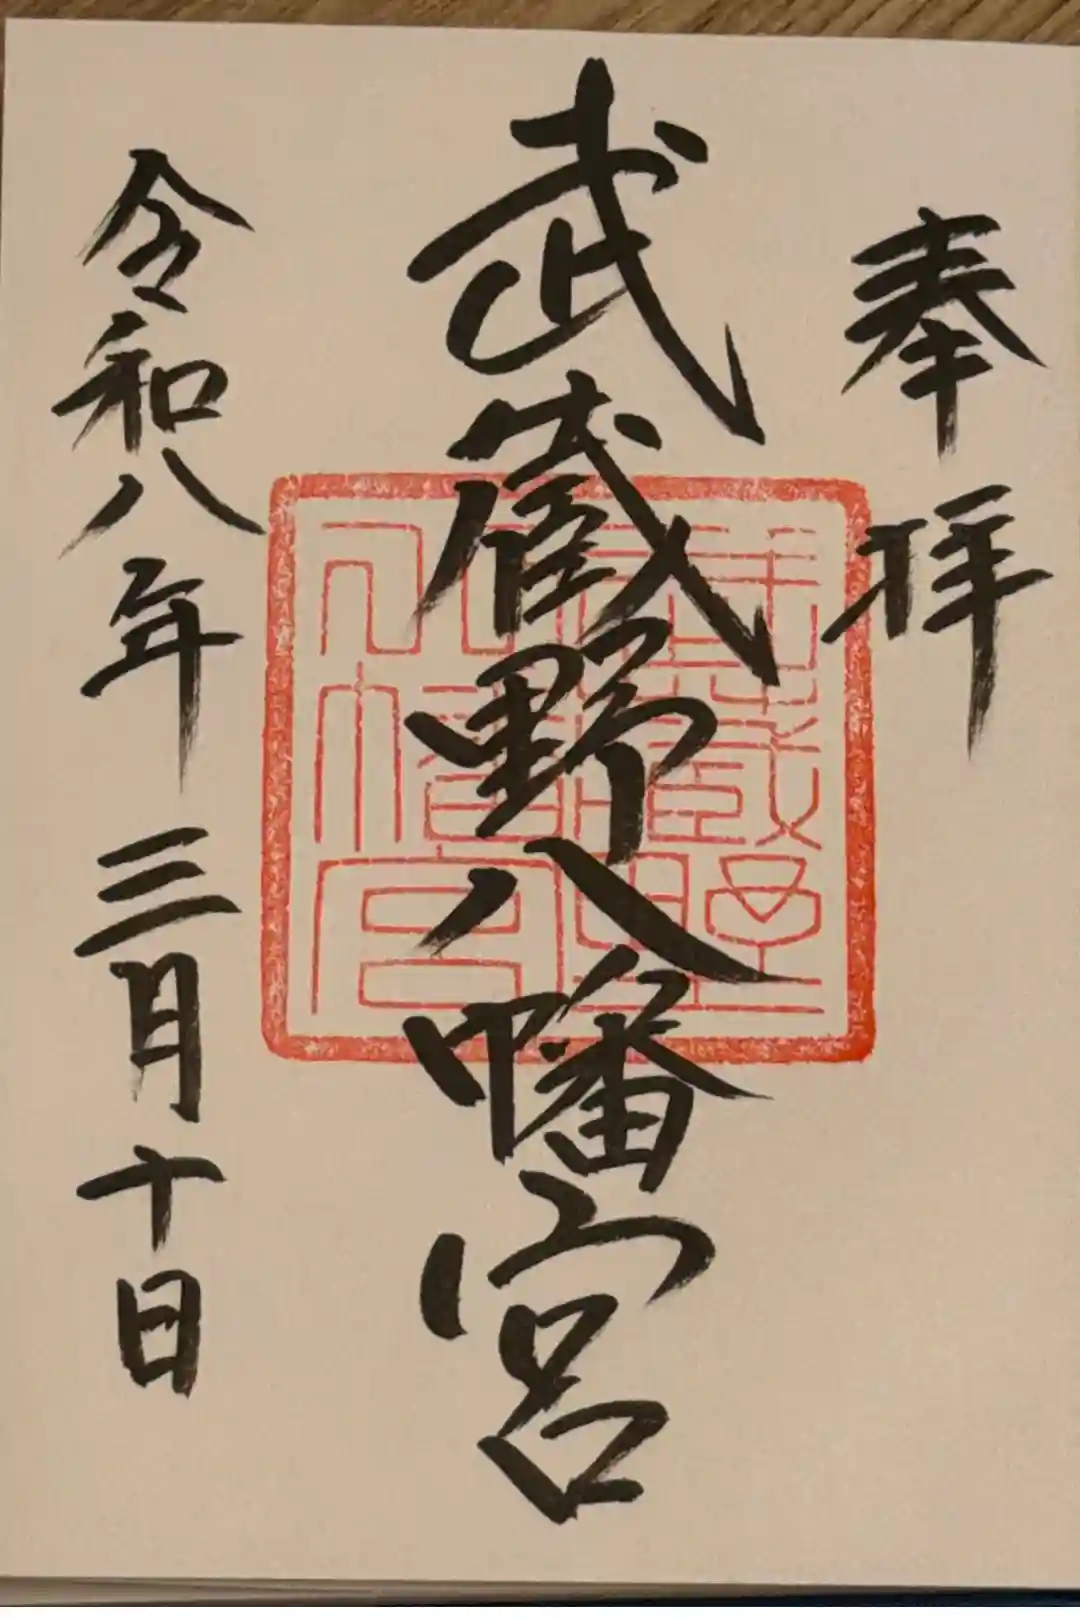 奉拝
武蔵野八幡宮
武蔵野
八幡宮
令和八年 三月十日